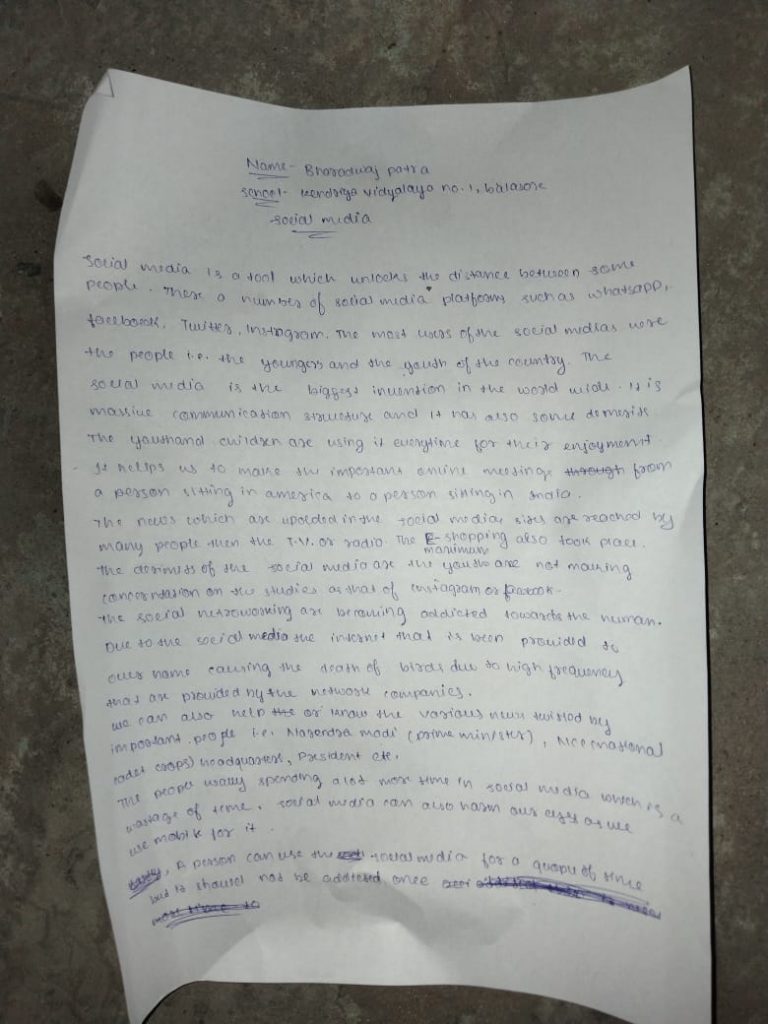 Name- Bharadwaj patra
school- kendriya vidyalaya no. 1, balasore
social media
Social media is a tool which unlocks the distance between some
people. There a number of social media platforms such as whatsapp,
facebook, Twitter, Instagram. The most users of the social medias were
the people i.e. the youngers and the youth of the country. The
social media is the biggest invention in the world wide. It is
massive communication structure and it has also some demerits
The youthand children are using it everytime for their enjoyment.
It hellps us to make the important online meetings through from
a person sitting in america to a person sitting in India.
The news which are uploded in the social media sites are reached by
many people then the T.V. or radio. The E-shopping also took place.
The demerits of the social media are the maximum youth are not making
concentration on the studies as that of instagram or facebook.
The social networking are becoming addicted towards the human.
Due to the social media the internet that is been provided to
our name causing the death of birds due to high frequency
that are provided by the network companies.
we can also help the or know the various news twisted by
important people i.e. Narendra modi (prime minister), NCC (national
cadet corps) headquarters, President etc.
The people usally spending alot more time in social media which is a
wastage of time. social media can also harm our eyes as we
use mobile for it.
A person can use the social media for a quape of time
but is should not be addicted once
most time to